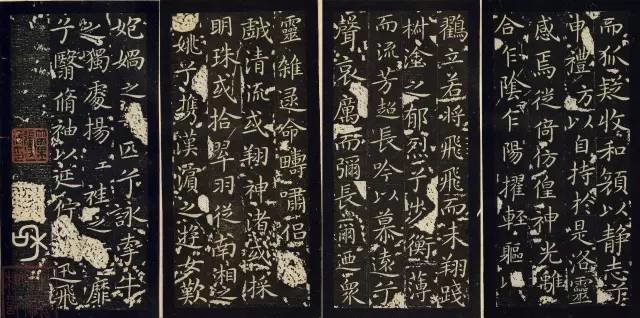 而狐疑收和顏以靜志兮
申禮方以自持於是洛靈
感焉徙倚仿偟神光離
合乍陰乍陽擢輕軀以
鶴立若將飛飛而未翔踐
椒塗之郁烈兮步衡薄
而流芳超長吟以慕遠兮
聲哀厲而彌長爾迺眾
靈雜遝命疇嘯侶
戲清流或翔神渚或採
明珠或拾翠羽從南湘之
姚兮攜漢濱之遊女歎
媧之匹兮詠牽牛
之獨處揚輕袿之靡
兮翳脩袖以延佇迅飛